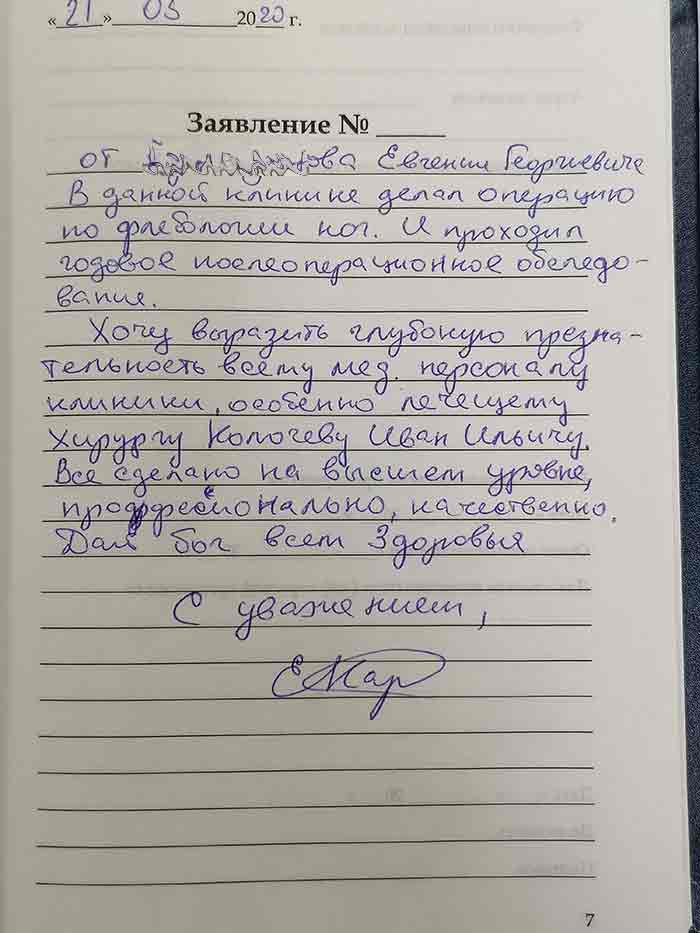 « 21 » 03 2020 г.
Заявление №
от ова Евгения Георгиевича
В данной клинике делал операцию
по флебологии ног. И проходил
годовое послеоперационное обследо-
вание.
Хочу выразить глубокую презна-
тельность всему мед. персоналу
клиники, особенно лечещему
хирургу Колочеву Иван Ильичу.
Все сделано на высшем уровне,
професионально, качественно.
Дай бог всем Здоровья
С уважением,
ЕМар
7